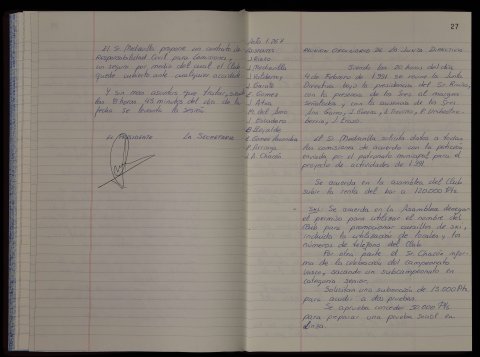 El Sr. Mediavilla propone un contrato de
Responsabilidad Civil para Comisiones,
un seguro por medio del cual el Club
quede cubierto ante cualquier accidente.
Y sin más asuntos que tratar, siendo
las 8 horas, 45 minutos del día de la
fecha se levanta la sesión.
EL PRESIDENTE LA SECRETARIA
Acta 1.267
J. Mediavilla
J. Gárate
F. Gómez
J. Atxa
B. Elejalde
F. Arriaga
J. A. Chacón
27
REUNION ORDINARIA DE LA JUNTA DIRECTIVA
Siendo las 20 horas del día
4 de Febrero de 1.991 se reune la Junta
Directiva bajo la presidencia del Sr.
con la presencia de los Sres. al margen
señalados y con la ausencia de los Sres.
El Sr. Mediavilla solicita datos a todas
las comisiones de acuerdo con la petición
enviada por el patronato municipal para el
proyecto de actividades de 1.991.
Se acuerda en la asamblea del Club
subir la renta del bar a 120.000 Pts.
- SKI: Se acuerda en la Asamblea denegar
el permiso para utilizar el nombre del
Club para promocionar cursillos de ski,
incluida la utilización de locales y los
números de teléfono del Club.
Por otra parte el Sr. Chacón infor-
ma de la celebración del campeonato
vasco, sacando un subcampeonato en
categoría senior.
Solicitan una subvención de 15.000 Pts
para acudir a dos pruebas.
Se aprueba conceder 30.000 Pts.
para preparar una prueba social en